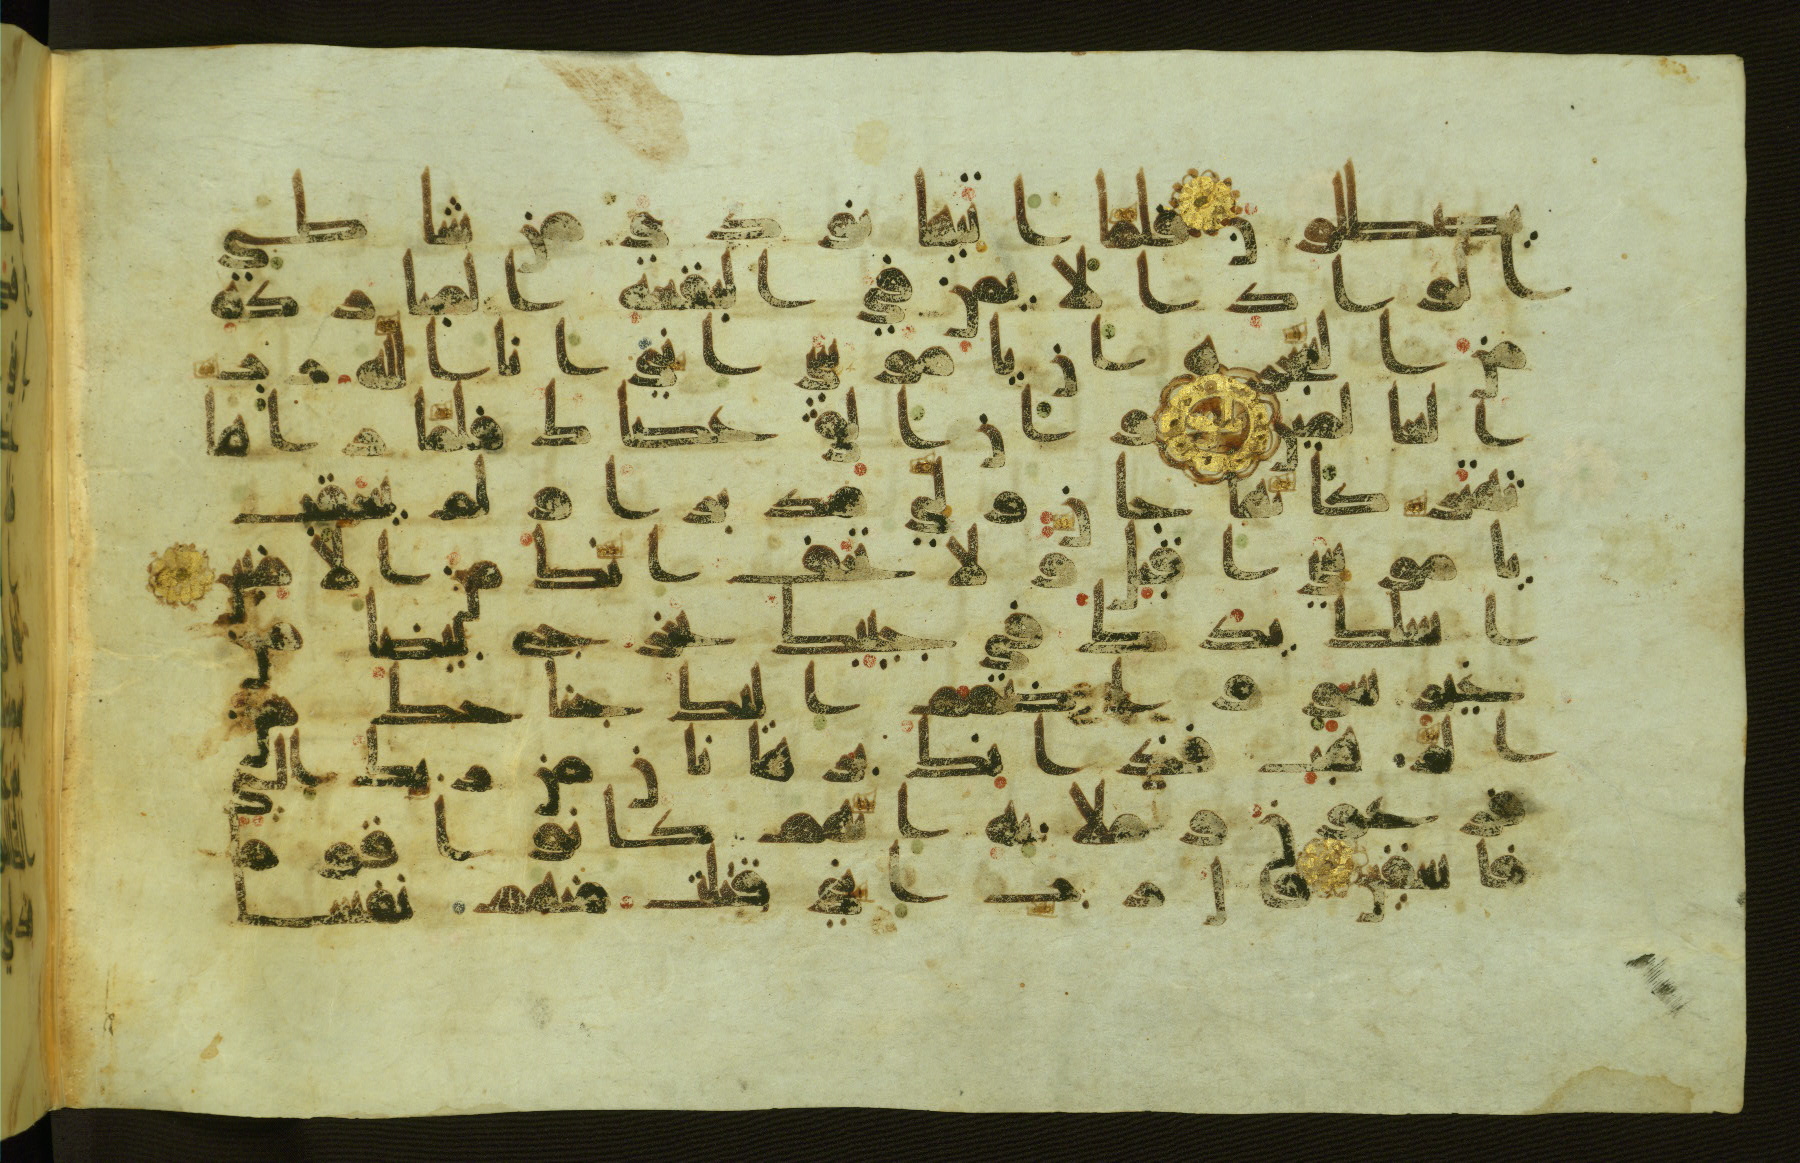 تصطلون فلما اتيها نودي من شاطي
الواد الايمن في البقعة المباركة
من الشجرة ان يا موسي اني انا الله رب
العالمين وان الق عصاك فلما راها
تهتز كانها جان ولي مدبرا ولم يعقب
يا موسي اقبل ولا تخف انك من الامنين
اسلك يدك في جيبك تخرج بيضا من
غير سو واضمم اليك جناحك من
الرهب فذانك برهانان من ربك الي
فرعون وملايه انهم كانوا قوما
فاسقين قال رب اني قتلت منهم نفسا